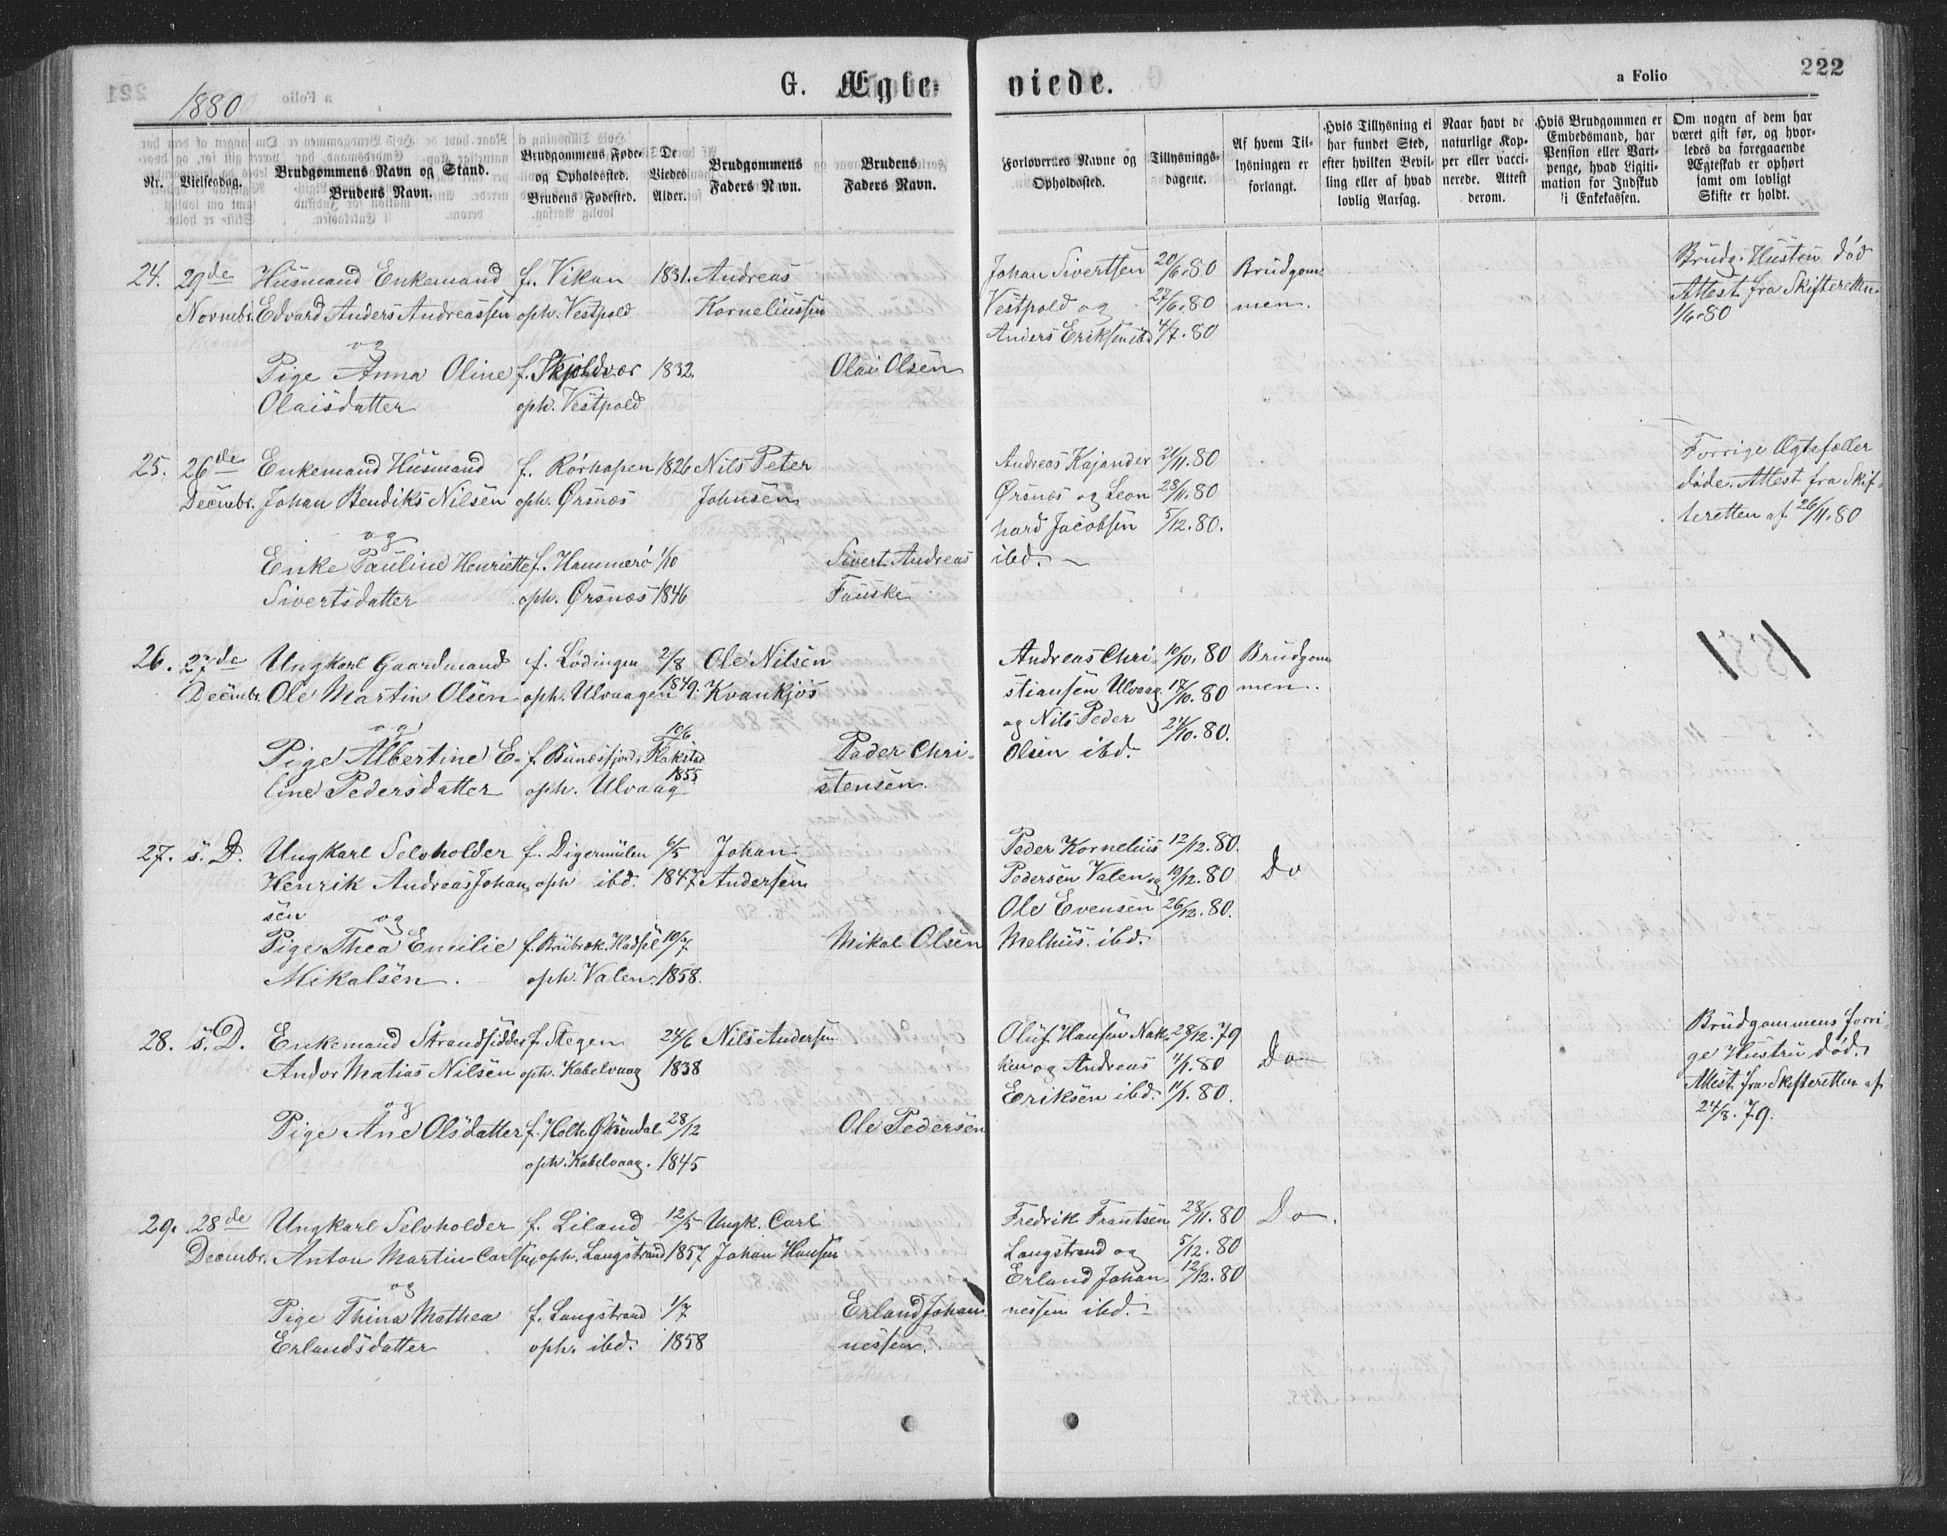 1880
G. Ægte-
viede.
a Folio
222
Nr.
Vielsesdag.
Brudgommens Navn og Stand.
Brudens Navn.
Brudgommens Føde-
og Opholdssted.
Brudens Fødested.
De
Viedes
Alder.
Brudgommens
Faders Navn.
Brudens
Faders Navn.
Forlovernes Navne og
Opholdssted.
Tillysnings-
dagene.
Af hvem Til-
lysningen er
forlangt.
Hvis Tillysning ei
har fundet Sted,
efter hvilken Bevil-
ling eller af hvad
lovlig Aarsag.
Naar havt de
naturlige Kop-
per eller vacci-
nerede. Attest
derom.
Hvis Brudgommen er
Embedsmand, har
Pension eller Vart-
penge, hvad Ligiti-
mation for Indskud
i Enkekassen.
Om nogen af dem har
været gift før, og hvor-
ledes da foregaaende
Ægteskab er ophørt
samt om lovligt
Skifte er holdt.
24. 29de Husmand Enkemand f. Vikan 1831. Andreas
Novmbr. Edvard Anders Andreassen oph. Vestpold Korneliussen
og
Pige Anna Oline f. Skjoldvær 1832. Olai Olsen
Olaisdatter oph. Vestpold
Johan Sivertsen 20/6.80 Brudgom
Vestpold og 27/6.80 men.
Anders Eriksen ibd 4/7.80
Brudg. Hustru død
Attest fra Skifteretten
1/6.80
25. 26de Enkemand Husmand f. Rørhopen 1826 Nils Peter
Decmbr. Johan Bendiks Nilsen oph. Ørsnæs Johnsen
og
Enke Pauline Henriette f. Hammerö 1/10 Sivert Andreas
Sivertsdatter oph. Ørsnæs 1846 Fauske
Andreas Kajander 21/11.80
Ørsnæs og Leon 28/11.80
hard Jacobsen 5/12.80.
ibd.
Forrige Ægtefæller
døde. Attest fra Skif-
teretten af 26/11.80
26. 27de Ungkarl Gaardmand f. Lødingen 2/8 Ole Nilsen
Decmbr. Ole Martin Olsen oph. Ulvaagen 1849. Kvankjøs
og
Pige Albertine E- f. Bunesfjord, Flakstad 10/6 Peder Chri-
line Pedersdatter oph. Ulvaag 1855 stensen.
Andreas Chri- 10/10.80 Brudgom
stiansen Ulvaag 17/10.80 men.
og Nils Peder
Olsen ibd. 24/10.80.
1881
27. s. D. Ungkarl Selvholder f. Digermulen 6/5 Johan
Henrik Andreas Johan oph ibd. 1847 Andersen
sen og
Pige Thea Emilie f. Hadsel 10/7 Mikal Olsen
Mikalsen. oph. Valen. 1858.
Peder Kornelius 12/12.80.
Pedersen Valen og 19/12.80 Do
Ole Evensen 26/12.80.
Melhus. ibd.
28. s. D. Enkemand Strandsidder f. Stegen 24/6 Nils Andersen
Andor Matias Nilsen oph. Kabelvaag 1838
og
Pige Ane Olsdatter f. Holte 28/12 Ole Pedersen
oph. Kabelvaag. 1845
Oluf Hansen Nak- 28/12.79
ken og Andreas 4/1.80 Do
Eriksen ibd. 11/1.80.
Brudgommens forri-
ge Hustru død.
Attest fra Skifteretten af
24/8.79.
29. 28de Ungkarl Selvholder f. Liland 12/5 Ungk. Carl
Decmbr. Anton Martin Carlsen, oph. Langstrand 1857 Johan Hansen
og
Pige Thina Mathea f. Langstrand 1/7 Erland Johan
Erlandsdatter oph. ibd. 1858 nessen.
Fredrik Frantsen 28/11.80 Do.
Langstrand og 5/12.80
Erland Johan 12/12.80
nessen ibd.